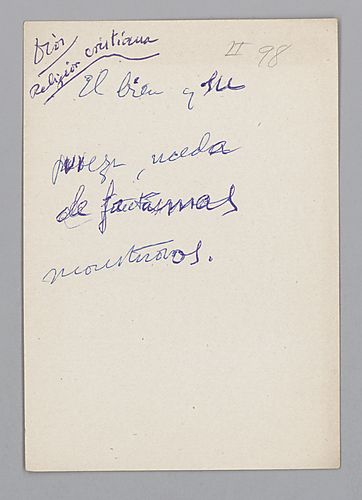 religión cristiana
II 98
El bien y su
, rueda
de fantasmas
monstruosos.